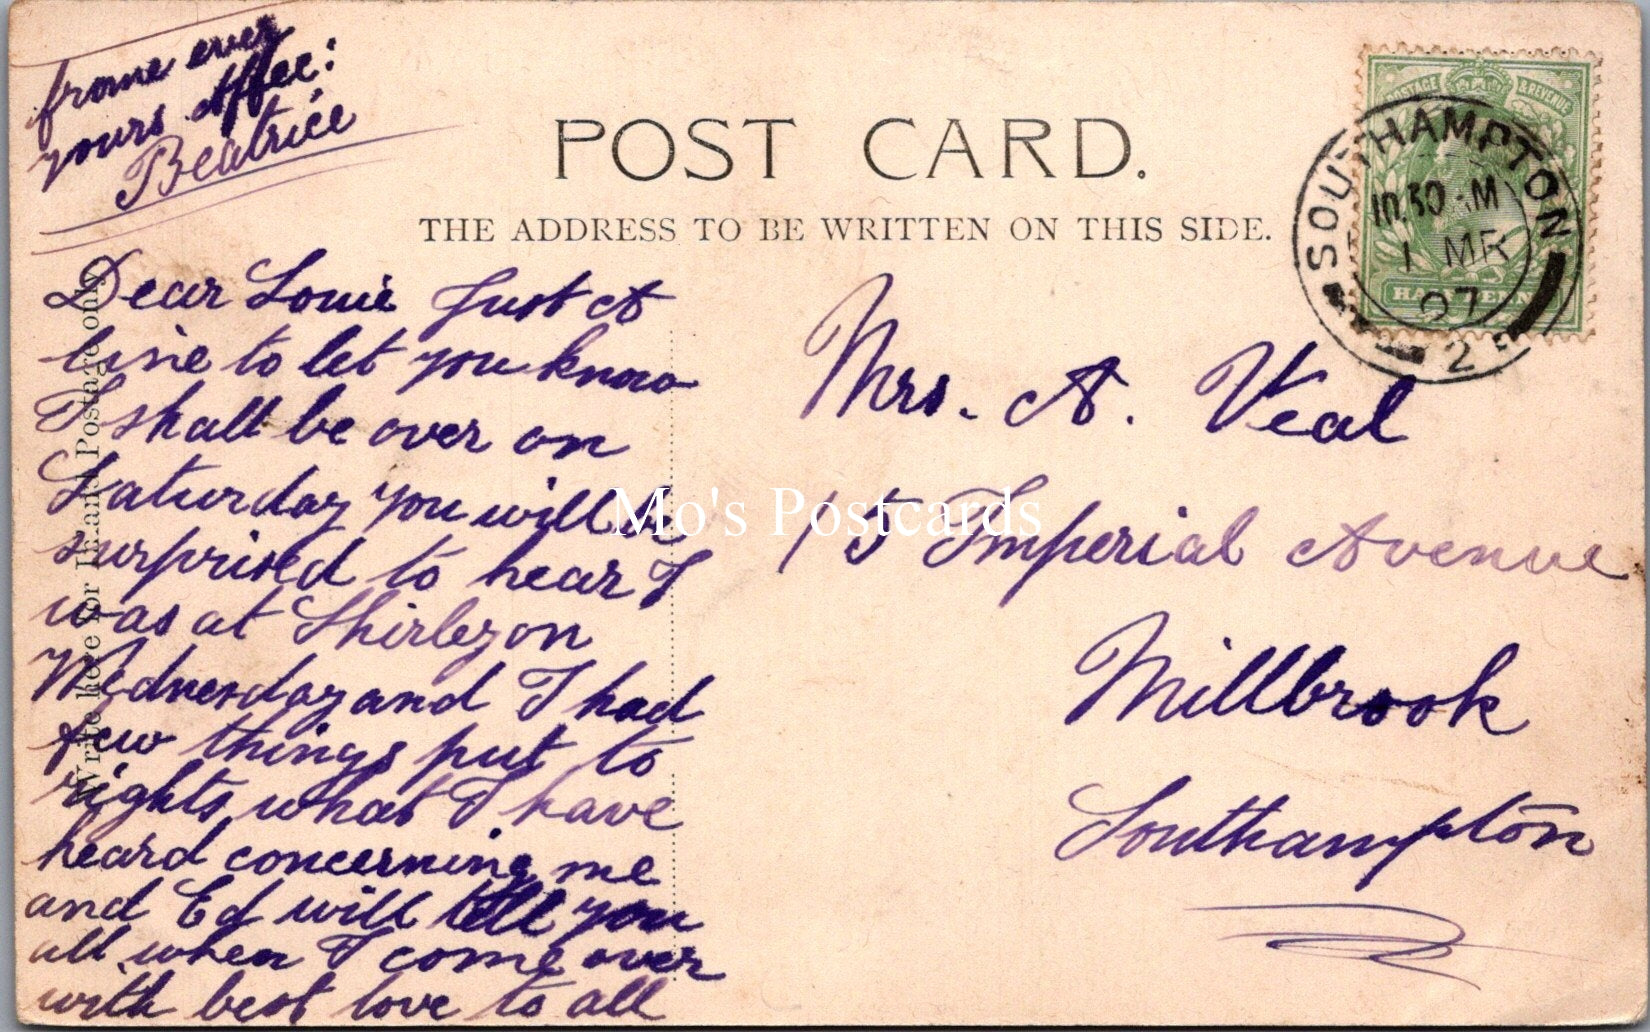 frome ever
yours Affec:
Beatrice
POST CARD.
THE ADDRESS TO BE WRITTEN ON THIS SIDE.
Write here for Inland Postage only.
Dear Louie Just A
line to let you know
I shall be over on
Saturday you will be
surprised to hear I
was at Shirley on
Wednesday and I had
few things put to
rights what I have
heard concerning me
and Ed will tell you
all when I come over
with best love to all
Mrs. A. Veal
15 Imperial Avenue
Millbrook
Southampton
POSTAGE & REVENUE
HALFPENNY
SOUTHAMPTON
10.30 M
1 MR
07
2
Mo's Postcards